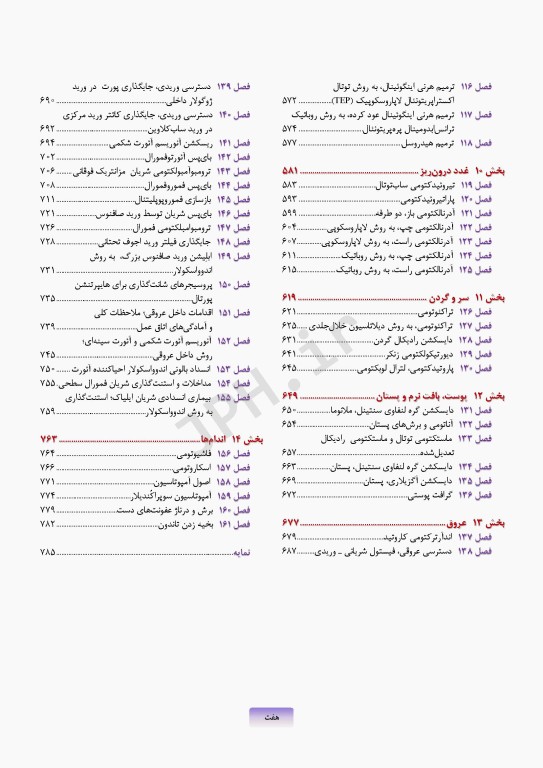 فصل ۱۱۶ ترمیم هرنی اینگوئینال، به روش توتال
اکستراپریتونئال لاپاروسکوپیک (TEP) ............... ۵۷۲
فصل ۱۱۷ ترمیم هرنی اینگوئینال عود کرده، به روش روباتیک
ترانس‌ابدومینال پره‌پریتونئال ............... ۵۷۴
فصل ۱۱۸ ترمیم هیدروسل ............... ۵۷۷
بخش ۱۰ غدد درون‌ریز ............... ۵۸۱
فصل ۱۱۹ تیروئیدکتومی ساب‌توتال ............... ۵۸۳
فصل ۱۲۰ پاراتیروئیدکتومی ............... ۵۹۳
فصل ۱۲۱ آدرنالکتومی باز، دو طرفه ............... ۵۹۹
فصل ۱۲۲ آدرنالکتومی چپ، به روش لاپاروسکوپی ............... ۶۰۴
فصل ۱۲۳ آدرنالکتومی راست، به روش لاپاروسکوپی ............... ۶۰۷
فصل ۱۲۴ آدرنالکتومی چپ، به روش روباتیک ............... ۶۱۱
فصل ۱۲۵ آدرنالکتومی راست، به روش روباتیک ............... ۶۱۵
بخش ۱۱ سر و گردن ............... ۶۱۹
فصل ۱۲۶ تراکئوتومی ............... ۶۲۱
فصل ۱۲۷ تراکئوتومی، به روش دیلاتاسیون خلال‌جلدی ............... ۶۲۵
فصل ۱۲۸ دایسکشن رادیکال گردن ............... ۶۳۱
فصل ۱۲۹ دیورتیکولکتومی زنکر ............... ۶۴۱
فصل ۱۳۰ پاروتیدکتومی، لترال لوبکتومی ............... ۶۴۵
بخش ۱۲ پوست، بافت نرم و پستان ............... ۶۴۹
فصل ۱۳۱ دایسکشن گره لنفاوی سنتینل، ملانوما ............... ۶۵۰
فصل ۱۳۲ آناتومی و برش‌های پستان ............... ۶۵۴
فصل ۱۳۳ ماستکتومی توتال و ماستکتومی رادیکال
تعدیل‌شده ............... ۶۵۷
فصل ۱۳۴ دایسکشن گره لنفاوی سنتینل، پستان ............... ۶۶۳
فصل ۱۳۵ دایسکشن آگزیلاری، پستان ............... ۶۶۹
فصل ۱۳۶ گرافت پوستی ............... ۶۷۲
بخش ۱۳ عروق ............... ۶۷۷
فصل ۱۳۷ اندآرترکتومی کاروتید ............... ۶۷۹
فصل ۱۳۸ دسترسی عروقی، فیستول شریانی ـ وریدی ............... ۶۸۷
فصل ۱۳۹ دسترسی وریدی، جایگذاری پورت در ورید
ژوگولار داخلی ............... ۶۹۰
فصل ۱۴۰ دسترسی وریدی، جایگذاری کاتتر ورید مرکزی
در ورید ساب‌کلاوین ............... ۶۹۲
فصل ۱۴۱ ریسکشن آنوریسم آئورت شکمی ............... ۶۹۴
فصل ۱۴۲ بای‌پس آئورتوفمورال ............... ۷۰۲
فصل ۱۴۳ ترومبوآمبولکتومی شریان مزانتریک فوقانی ............... ۷۰۶
فصل ۱۴۴ بای‌پس فموروفمورال ............... ۷۰۸
فصل ۱۴۵ بازسازی فموروپوپلیتئال ............... ۷۱۱
فصل ۱۴۶ بای‌پس شریان توسط ورید صافنوس ............... ۷۲۱
فصل ۱۴۷ ترومبوآمبلکتومی فمورال ............... ۷۲۶
فصل ۱۴۸ جایگذاری فیلتر ورید اجوف تحتانی ............... ۷۲۸
فصل ۱۴۹ ابلیشن ورید صافنوس بزرگ، به روش
اندوواسکولار ............... ۷۳۱
فصل ۱۵۰ پروسیجرهای شانت‌گذاری برای هایپرتنشن
پورتال ............... ۷۳۵
فصل ۱۵۱ اقدامات داخل عروقی؛ ملاحظات کلی
و آمادگی‌های اتاق عمل ............... ۷۳۹
فصل ۱۵۲ آنوریسم آئورت شکمی و آئورت سینه‌ای؛
روش داخل عروقی ............... ۷۴۵
فصل ۱۵۳ انسداد بالونی اندوواسکولار احیاکننده آئورت ............... ۷۵۰
فصل ۱۵۴ مداخلات و استنت‌گذاری شریان فمورال سطحی ............... ۷۵۵
فصل ۱۵۵ بیماری انسدادی شریان ایلیاک؛ استنت‌گذاری
به روش اندوواسکولار ............... ۷۵۹
بخش ۱۴ اندام‌ها ............... ۷۶۳
فصل ۱۵۶ فاشیوتومی ............... ۷۶۴
فصل ۱۵۷ اسکاروتومی ............... ۷۶۶
فصل ۱۵۸ اصول آمپوتاسیون ............... ۷۷۱
فصل ۱۵۹ آمپوتاسیون سوپراکُندیلار ............... ۷۷۴
فصل ۱۶۰ برش و درناژ عفونت‌های دست ............... ۷۷۹
فصل ۱۶۱ بخیه زدن تاندون ............... ۷۸۲
نمایه ............... ۷۸۵
JPH.ir
هفت